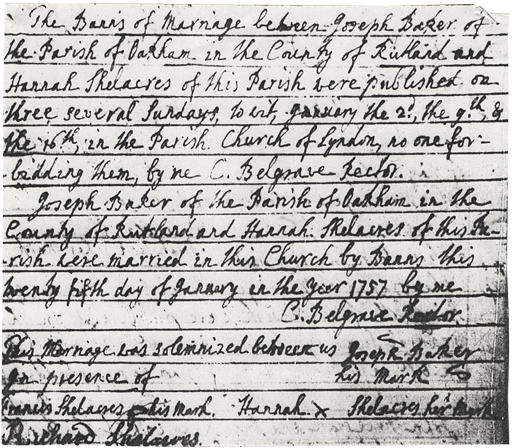 The Banns of Marriage between Joseph Baker of
the Parish of Oakham in the County of Rutland and
Hannah Shelacres of this Parish were published on
three several Sundays, to wit, January the 2d, the 9th, &
the 16th, in the Parish Church of Lyndon, no one for-
bidding them, by me C. Belgrave Rector.
Joseph Baker of the Parish of Oakham in the
County of Rutland and Hannah Shelacres of this Pa-
rish were married in this Church by Banns this
twenty fifth day of January in the Year 1757 by me
C. Belgrave Rector
This Marriage was solemnized between us Joseph Baker
In presence of his Mark
Francis Shelacres his mark. Hannah x Shelacres her Mark
Richard Shelacres